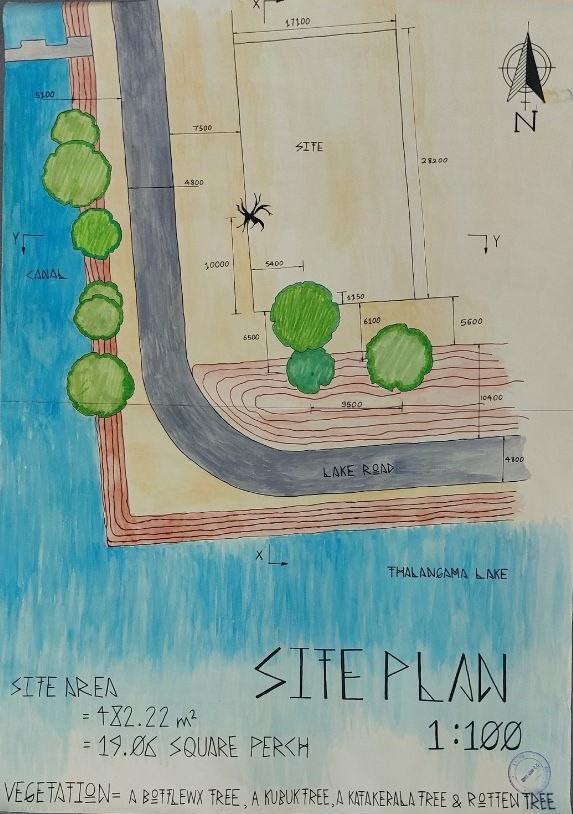 X
17100
N
5100
7500
SITE
28200
4800
Y
Y
CANAL
10000
5400
1150
6500
6100
5600
9500
10400
LAKE ROAD
4800
X
THALANGAMA LAKE
SITE PLAN
1:100
SITE AREA
= 482.22 m²
= 19.06 SQUARE PERCH
VEGETATION = A BOTTLEWX TREE, A KUBUK TREE, A KATAKERALA TREE & ROTTEN TREE